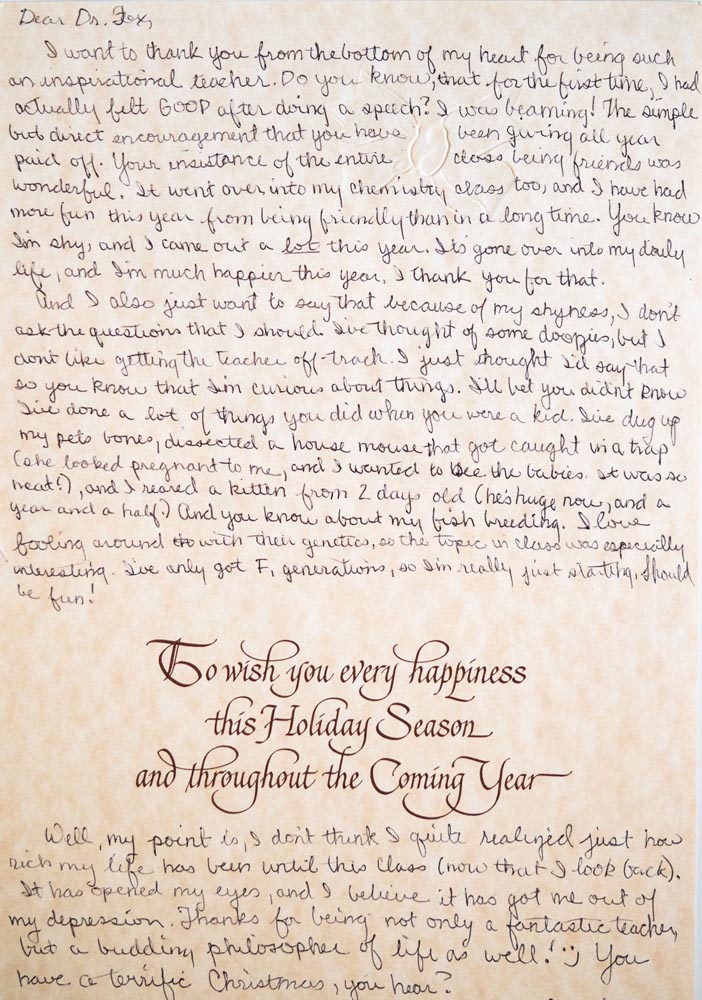 Dear Dr. Fox,
I want to thank you from the bottom of my heart for being such
an inspirational teacher. Do you know, that for the first time, I had
actually felt GOOD after doing a speech? I was beaming! The simple
but direct encouragement that you have been giving all year
paid off. Your insistance of the entire class being friends was
wonderful. It went over into my chemistry class too, and I have had
more fun this year from being friendly than in a long time. You know
I'm shy, and I came out a lot this year. It's gone over into my daily
life, and I'm much happier this year. I thank you for that.
And I also just want to say that because of my shyness, I don't
ask the questions that I should. I've thought of some doozies, but I
don't like getting the teacher off-track. I just thought I'd say that
so you know that I'm curious about things. I'll bet you didn't know
I've done a lot of things you did when you were a kid. I've dug up
my pets bones, dissected a house mouse that got caught in a trap
(she looked pregnant to me, and I wanted to see the babies. It was so
neat!), and I reared a kitten from 2 days old (he's huge now, and a
year and a half.) And you know about my fish breeding. I love
fooling around with their genetics, so the topic in class was especially
interesting. I've only got F, generations, so I'm really just starting. Should
be fun!
To wish you every happiness
this Holiday Season
and throughout the Coming Year
Well, my point is, I don't think I quite realized just how
rich my life has been until this class (now that I look back).
It has opened my eyes, and I believe it has got me out of
my depression. Thanks for being not only a fantastic teacher,
but a budding philosopher of life as well! :) You
have a terrific Christmas, you hear?